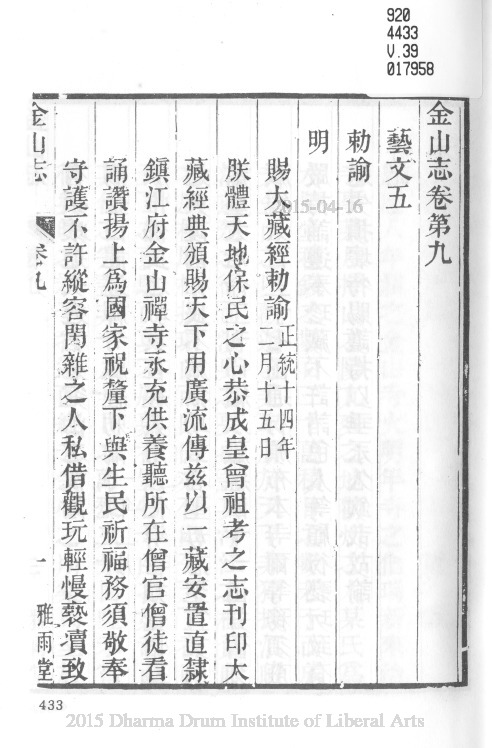 920
4433
V.39
017958
金山志卷第九
藝文五
勅諭
明
賜大藏經勅諭正統十四年二月十五日
朕體天地保民之心恭成皇曾祖考之志刊印大
藏經典頒賜天下用廣流傳茲以一藏安置直隸
鎮江府金山禪寺永充供養聽所在僧官僧徒看
誦讚揚上爲國家祝釐下與生民祈福務須敬奉
守護不許縱容閑雜之人私借觀玩輕慢褻瀆致
金山志
卷九
一
雅雨堂
433
2015-04-16
2015 Dharma Drum Institute of Liberal Arts